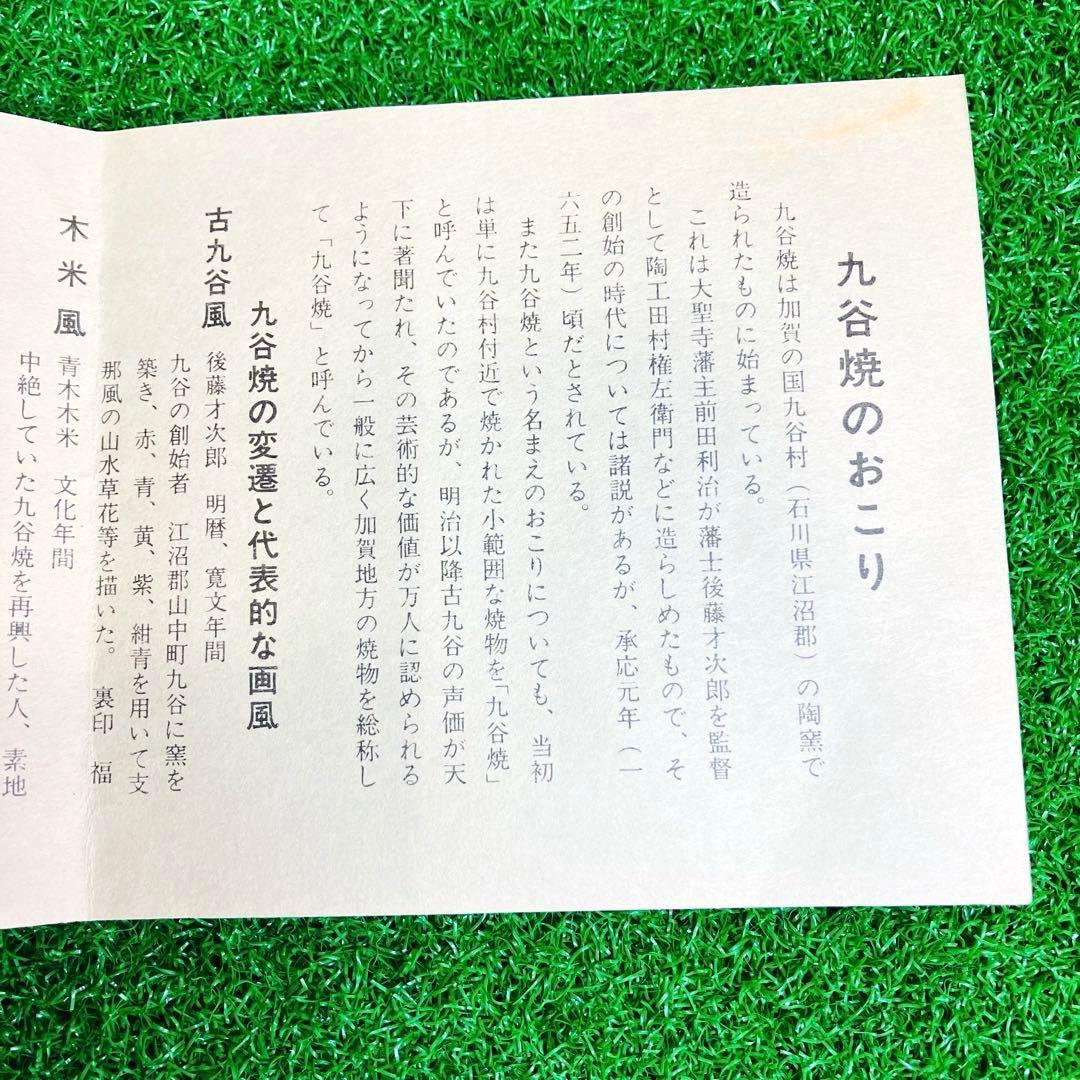 九谷焼のおこり
九谷焼は加賀の国九谷村（石川県江沼郡）の陶窯で
造られたものに始まっている。
これは大聖寺藩主前田利治が藩士後藤才次郎を監督
として陶工田村権左衛門などに造らしめたもので、そ
の創始の時代については諸説があるが、承応元年（一
六五二年）頃だとされている。
また九谷焼という名まえのおこりについても、当初
は単に九谷村付近で焼かれた小範囲な焼物を「九谷焼」
と呼んでいたのであるが、明治以降古九谷の声価が天
下に著聞たれ、その芸術的な価値が万人に認められる
ようになってから一般に広く加賀地方の焼物を総称し
て「九谷焼」と呼んでいる。
九谷焼の変遷と代表的な画風
古九谷風 後藤才次郎 明暦、寛文年間
九谷の創始者 江沼郡山中町九谷に窯を
築き、赤、青、黄、紫、紺青を用いて支
那風の山水草花等を描いた。 裏印 福
木米風 青木木米 文化年間
中絶していた九谷焼を再興した人、素地